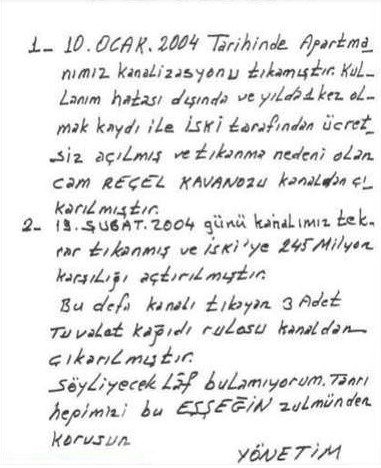 1- 10.OCAK.2004 Tarihinde Apartma_
nımız kanalizasyonu tıkamıştır. Kul_
Lanım hatası dışında ve yılda 1 kez ol_
mak kaydı ile İSKİ tarafından ücret_
siz açılmış ve tıkanma nedeni olan
cam REÇEL KAVANOZU kanaldan çı_
karılmıştır.
2- 19.ŞUBAT.2004 günü kanalımız tek_
rar tıkanmış ve İSKİ'ye 245 Milyon
karşılığı açtırılmıştır.
Bu defa kanalı tıkayan 3 Adet
Tuvalet kağıdı rulosu kanaldan
çıkarılmıştır.
Söyliyecek Lâf bulamıyorum. Tanrı
hepimizi bu EŞŞEĞİN zulmünden
korusun
YÖNETİM